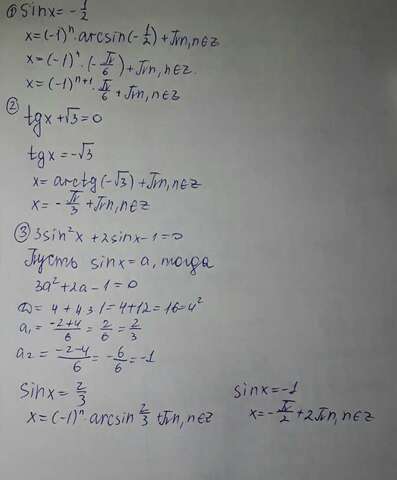 ① Sin x = - 1/2
x = (-1)ⁿ · arcsin(- 1/2) + πn, n∈z
x = (-1)ⁿ · (- π/6) + πn, n∈z.
x = (-1)ⁿ⁺¹ · π/6 + πn, n∈z
② tg x + √3 = 0
tg x = -√3
x = arctg(-√3) + πn, n∈z
x = - π/3 + πn, n∈z
③ 3sin²x + 2sinx - 1 = 0
Пусть sinx = a, тогда
3a² + 2a - 1 = 0
D = 4 + 4·3·1 = 4 + 12 = 16 = 4²
a₁ = (-2+4)/6 = 2/6 = 2/3
a₂ = (-2-4)/6 = - 6/6 = -1
Sinx = 2/3 sinx = -1
x = (-1)ⁿ · arcsin 2/3 + πn, n∈z x = - π/2 + 2πn, n∈z